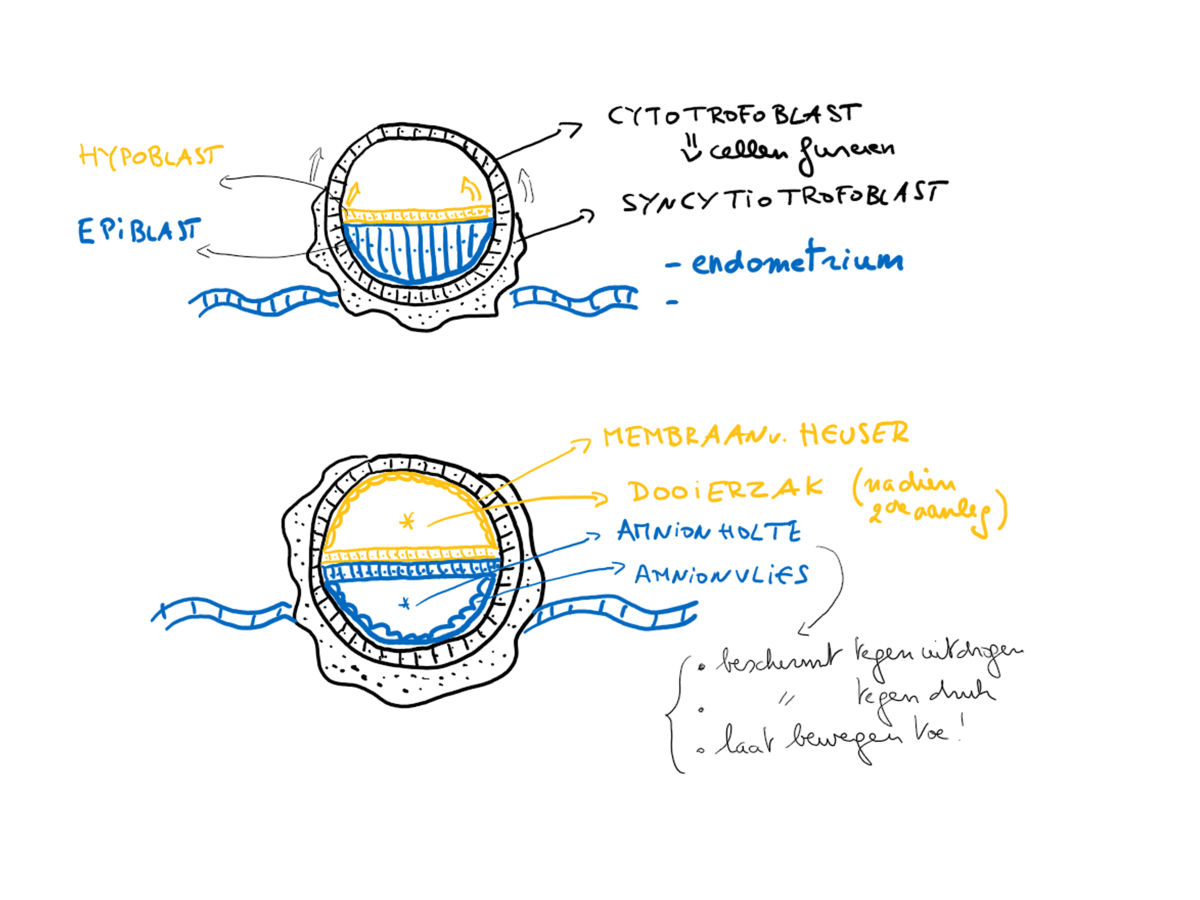 HYPOBLAST
EPIBLAST
CYTOTROFOBLAST
cellen fuseren
SYNCYTIOTROFOBLAST
- endometrium
-
MEMBRAAN v. HEUSER
DOOIERZAK (nadien
2de aanleg)
AMNIONHOLTE
AMNIONVLIES
• beschermt tegen uitdrogen
• " tegen druk
• laat bewegen toe!